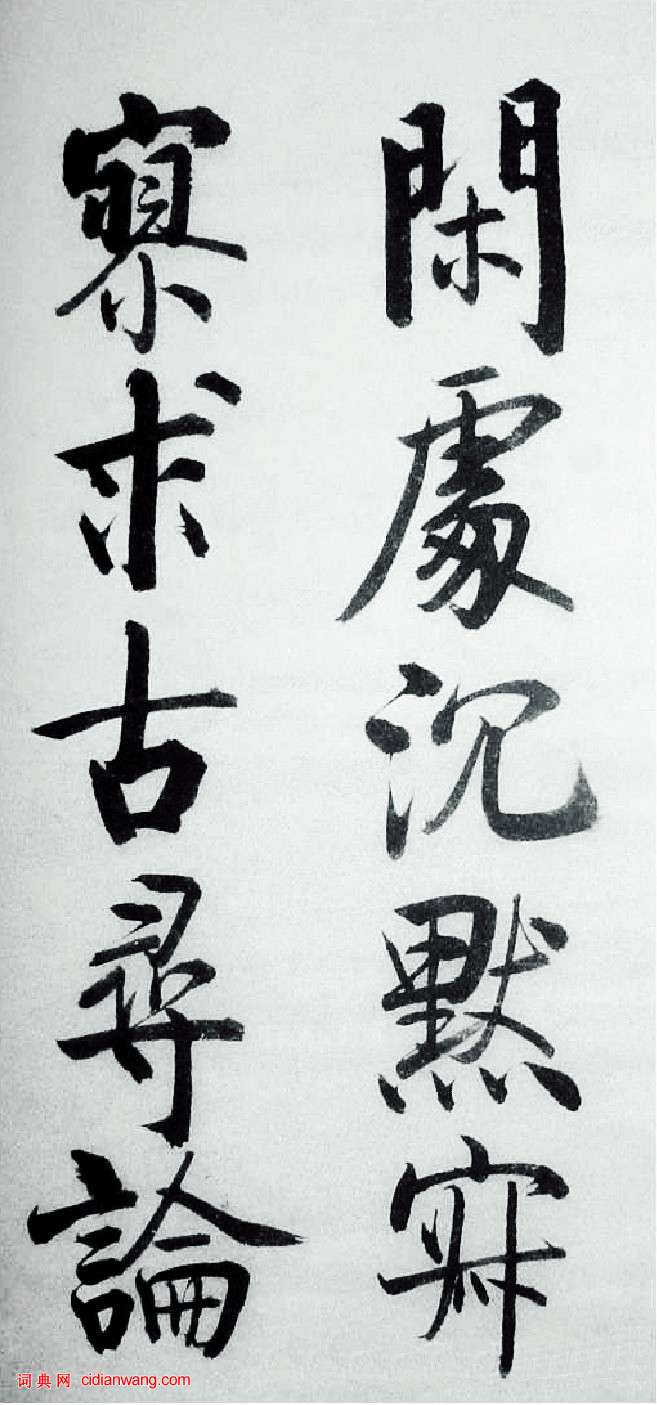 閑處沉默寂
寥求古尋論
词典网 cidianwang.com